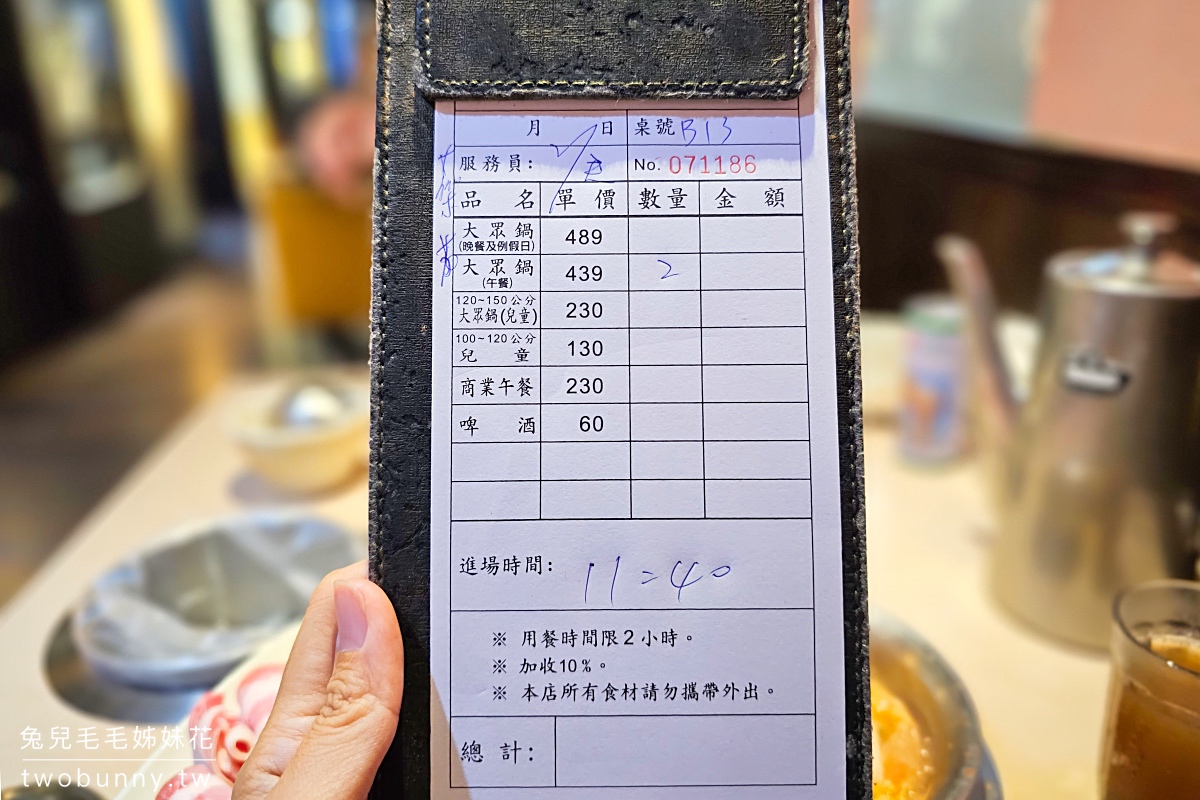 月 日 桌號 B13
服務員: No. 071186
品名 單價 數量 金額
大眾鍋 (晚餐及例假日) 489
大眾鍋 (午餐) 439 2
120~150公分 大眾鍋(兒童) 230
100~120公分 兒童 130
商業午餐 230
啤酒 60
進場時間: 11:40
※ 用餐時間限2小時。
※ 加收10%。
※ 本店所有食材請勿攜帶外出。
總計:
兔兒毛毛姊妹花
twobunny.tw